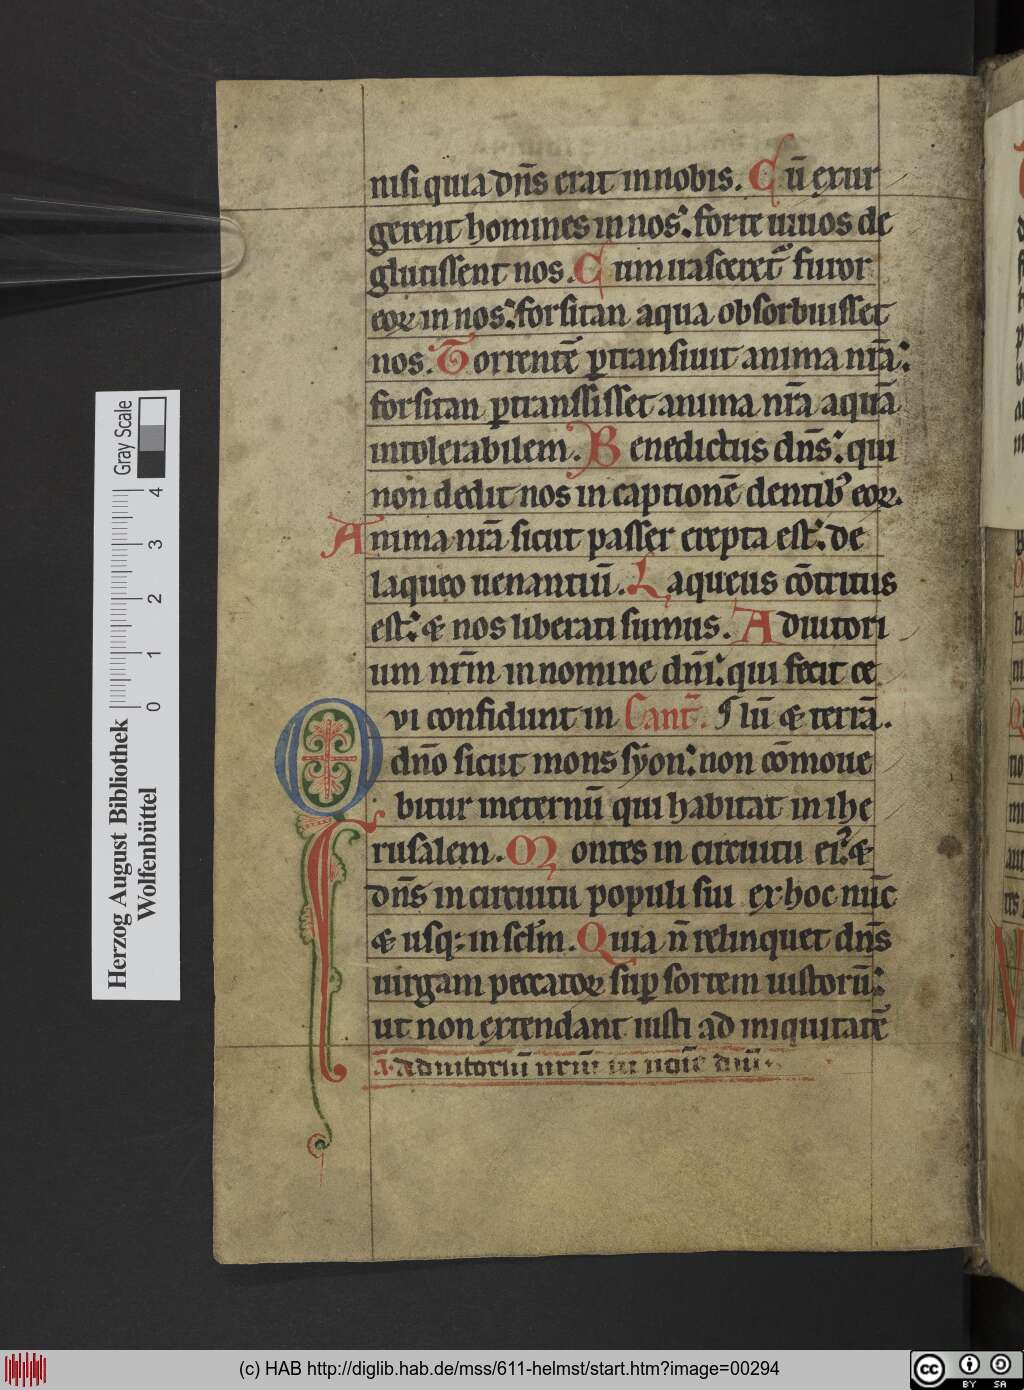 nisi quia dn̄s erat in nobis. Cū exur
gerent homines in nos: forte uiuos de
glutissent nos. Cum irasceret᷑ furor
eoꝝ in nos: forsitan aqua obsorbuisset
nos. Torrentē ꝑtransiuit anima nr̄a:
forsitan ꝑtransisset anima nr̄a aquā
intolerabilem. Benedictus dn̄s: qui
non dedit nos in captionē dentibꝰ eoꝝ.
Anima nr̄a sicut passer erepta est: de
laqueo uenantiū. Laqueus cōtritus
est: & nos liberati sumus. Adiutori
um nr̄m in nomine dn̄i: qui fecit ce
Qvi confidunt in Cant̄. lū & terrā.
dn̄o sicut mons sẏon: non cōmoue
bitur ineternū qui habitat in ihe
rusalem. Montes in circuitu eiꝰ: &
dn̄s in circuitu populi sui ex hoc nūc
& usq; in sc̄lm. Quia n̄ relinquet dn̄s
uirgam peccatoꝝ sup̄ sortem iustorū:
ut non extendant iusti ad iniquitatē
ā. Adiutoriū nr̄m in noīe dn̄i.
Gray Scale
0 1 2 3 4
Herzog August Bibliothek
Wolfenbüttel
(c) HAB http://diglib.hab.de/mss/611-helmst/start.htm?image=00294
cc BY SA